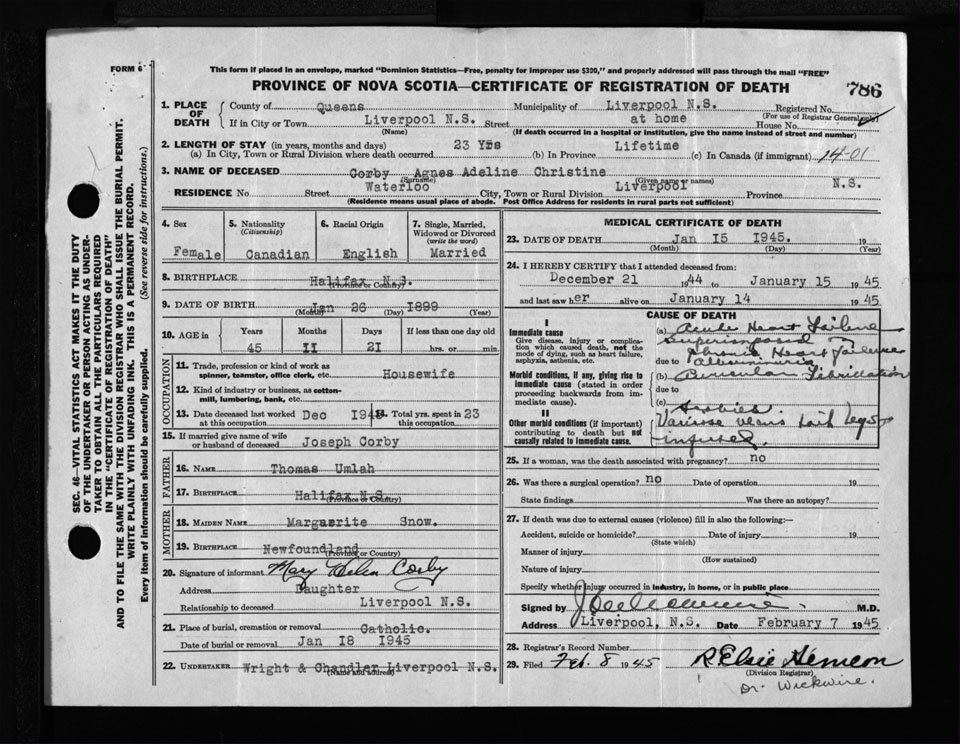 FORM 6
This form if placed in an envelope, marked "Dominion Statistics—Free, penalty for improper use $300," and properly addressed will pass through the mail "FREE"
PROVINCE OF NOVA SCOTIA—CERTIFICATE OF REGISTRATION OF DEATH
786
1. PLACE OF DEATH
County of Queens Municipality of Liverpool N.S. Registered No.
(For use of Registrar General only)
If in City or Town Liverpool N.S. Street at home House No.
(Name) (If death occurred in a hospital or institution, give the name instead of street and number)
2. LENGTH OF STAY (in years, months and days)
(a) In City, Town or Rural Division where death occurred 23 Yrs (b) In Province Lifetime (c) In Canada (if immigrant) 14-01
3. NAME OF DECEASED Corby Agnes Adeline Christine
(Surname) (Given name or names)
RESIDENCE No. Street Waterloo City, Town or Rural Division Liverpool Province N.S.
(Residence means usual place of abode. Post Office Address for residents in rural parts not sufficient)
4. Sex
Female
5. Nationality
(Citizenship)
Canadian
6. Racial Origin
English
7. Single, Married, Widowed or Divorced
(write the word)
Married
8. BIRTHPLACE Halifax N.S.
(Province or Country)
9. DATE OF BIRTH Jan 26 1899
(Month) (Day) (Year)
10. AGE in
Years Months Days If less than one day old
45 II 21 hrs. or min.
OCCUPATION
11. Trade, profession or kind of work as spinner, teamster, office clerk, etc. Housewife
12. Kind of industry or business, as cotton-mill, lumbering, bank, etc.
13. Date deceased last worked at this occupation Dec
14. Total yrs. spent in this occupation 23
15. If married give name of wife or husband of deceased Joseph Corby
FATHER
16. NAME Thomas Umlah
17. BIRTHPLACE Halifax N.S.
(Province or Country)
MOTHER
18. MAIDEN NAME Margaerite Snow.
19. BIRTHPLACE Newfoundland
(Province or Country)
20. Signature of informant Mary Helen Corby
Address Daughter
Relationship to deceased Liverpool N.S.
21. Place of burial, cremation or removal Catholic.
Date of burial or removal Jan 18 1945
22. UNDERTAKER Wright & Chandler Liverpool N.S.
(Name and address)
MEDICAL CERTIFICATE OF DEATH
23. DATE OF DEATH Jan 15 1945. 19
(Month) (Day) (Year)
24. I HEREBY CERTIFY that I attended deceased from:
December 21 1944 to January 15 1945
and last saw her alive on January 14 1945
CAUSE OF DEATH
I
Immediate cause
Give disease, injury or complication which caused death, not the mode of dying, such as heart failure, asphyxia, asthenia, etc.
(a) Acute Heart Failure
Superimposed
due to Chronic Heart Failure
Morbid conditions, if any, giving rise to immediate cause (stated in order proceeding backwards from immediate cause).
(b) Auricular Fibrillation
due to
(c)
II
Other morbid conditions (if important) contributing to death but not causally related to immediate cause.
Varicose veins both legs
25. If a woman, was the death associated with pregnancy? no
26. Was there a surgical operation? no Date of operation 19
State findings Was there an autopsy?
27. If death was due to external causes (violence) fill in also the following:—
Accident, suicide or homicide? Date of injury 19
(State which)
Manner of injury
(How sustained)
Nature of injury
Specify whether injury occurred in industry, in home, or in public place
Signed by M.D.
Address Liverpool, N.S. Date February 7 1945
28. Registrar's Record Number
29. Filed Feb. 8 1945 R Elsie Hemeon
(Division Registrar)
Dr. Wickwire.
SEC. 46—VITAL STATISTICS ACT MAKES IT THE DUTY
OF THE UNDERTAKER OR PERSON ACTING AS UNDER-
TAKER TO OBTAIN ALL THE PARTICULARS REQUIRED
IN THE "CERTIFICATE OF REGISTRATION OF DEATH"
AND TO FILE THE SAME WITH THE DIVISION REGISTRAR WHO SHALL ISSUE THE BURIAL PERMIT.
WRITE PLAINLY WITH UNFADING INK. THIS IS A PERMANENT RECORD.
Every item of information should be carefully supplied. (See reverse side for instructions.)